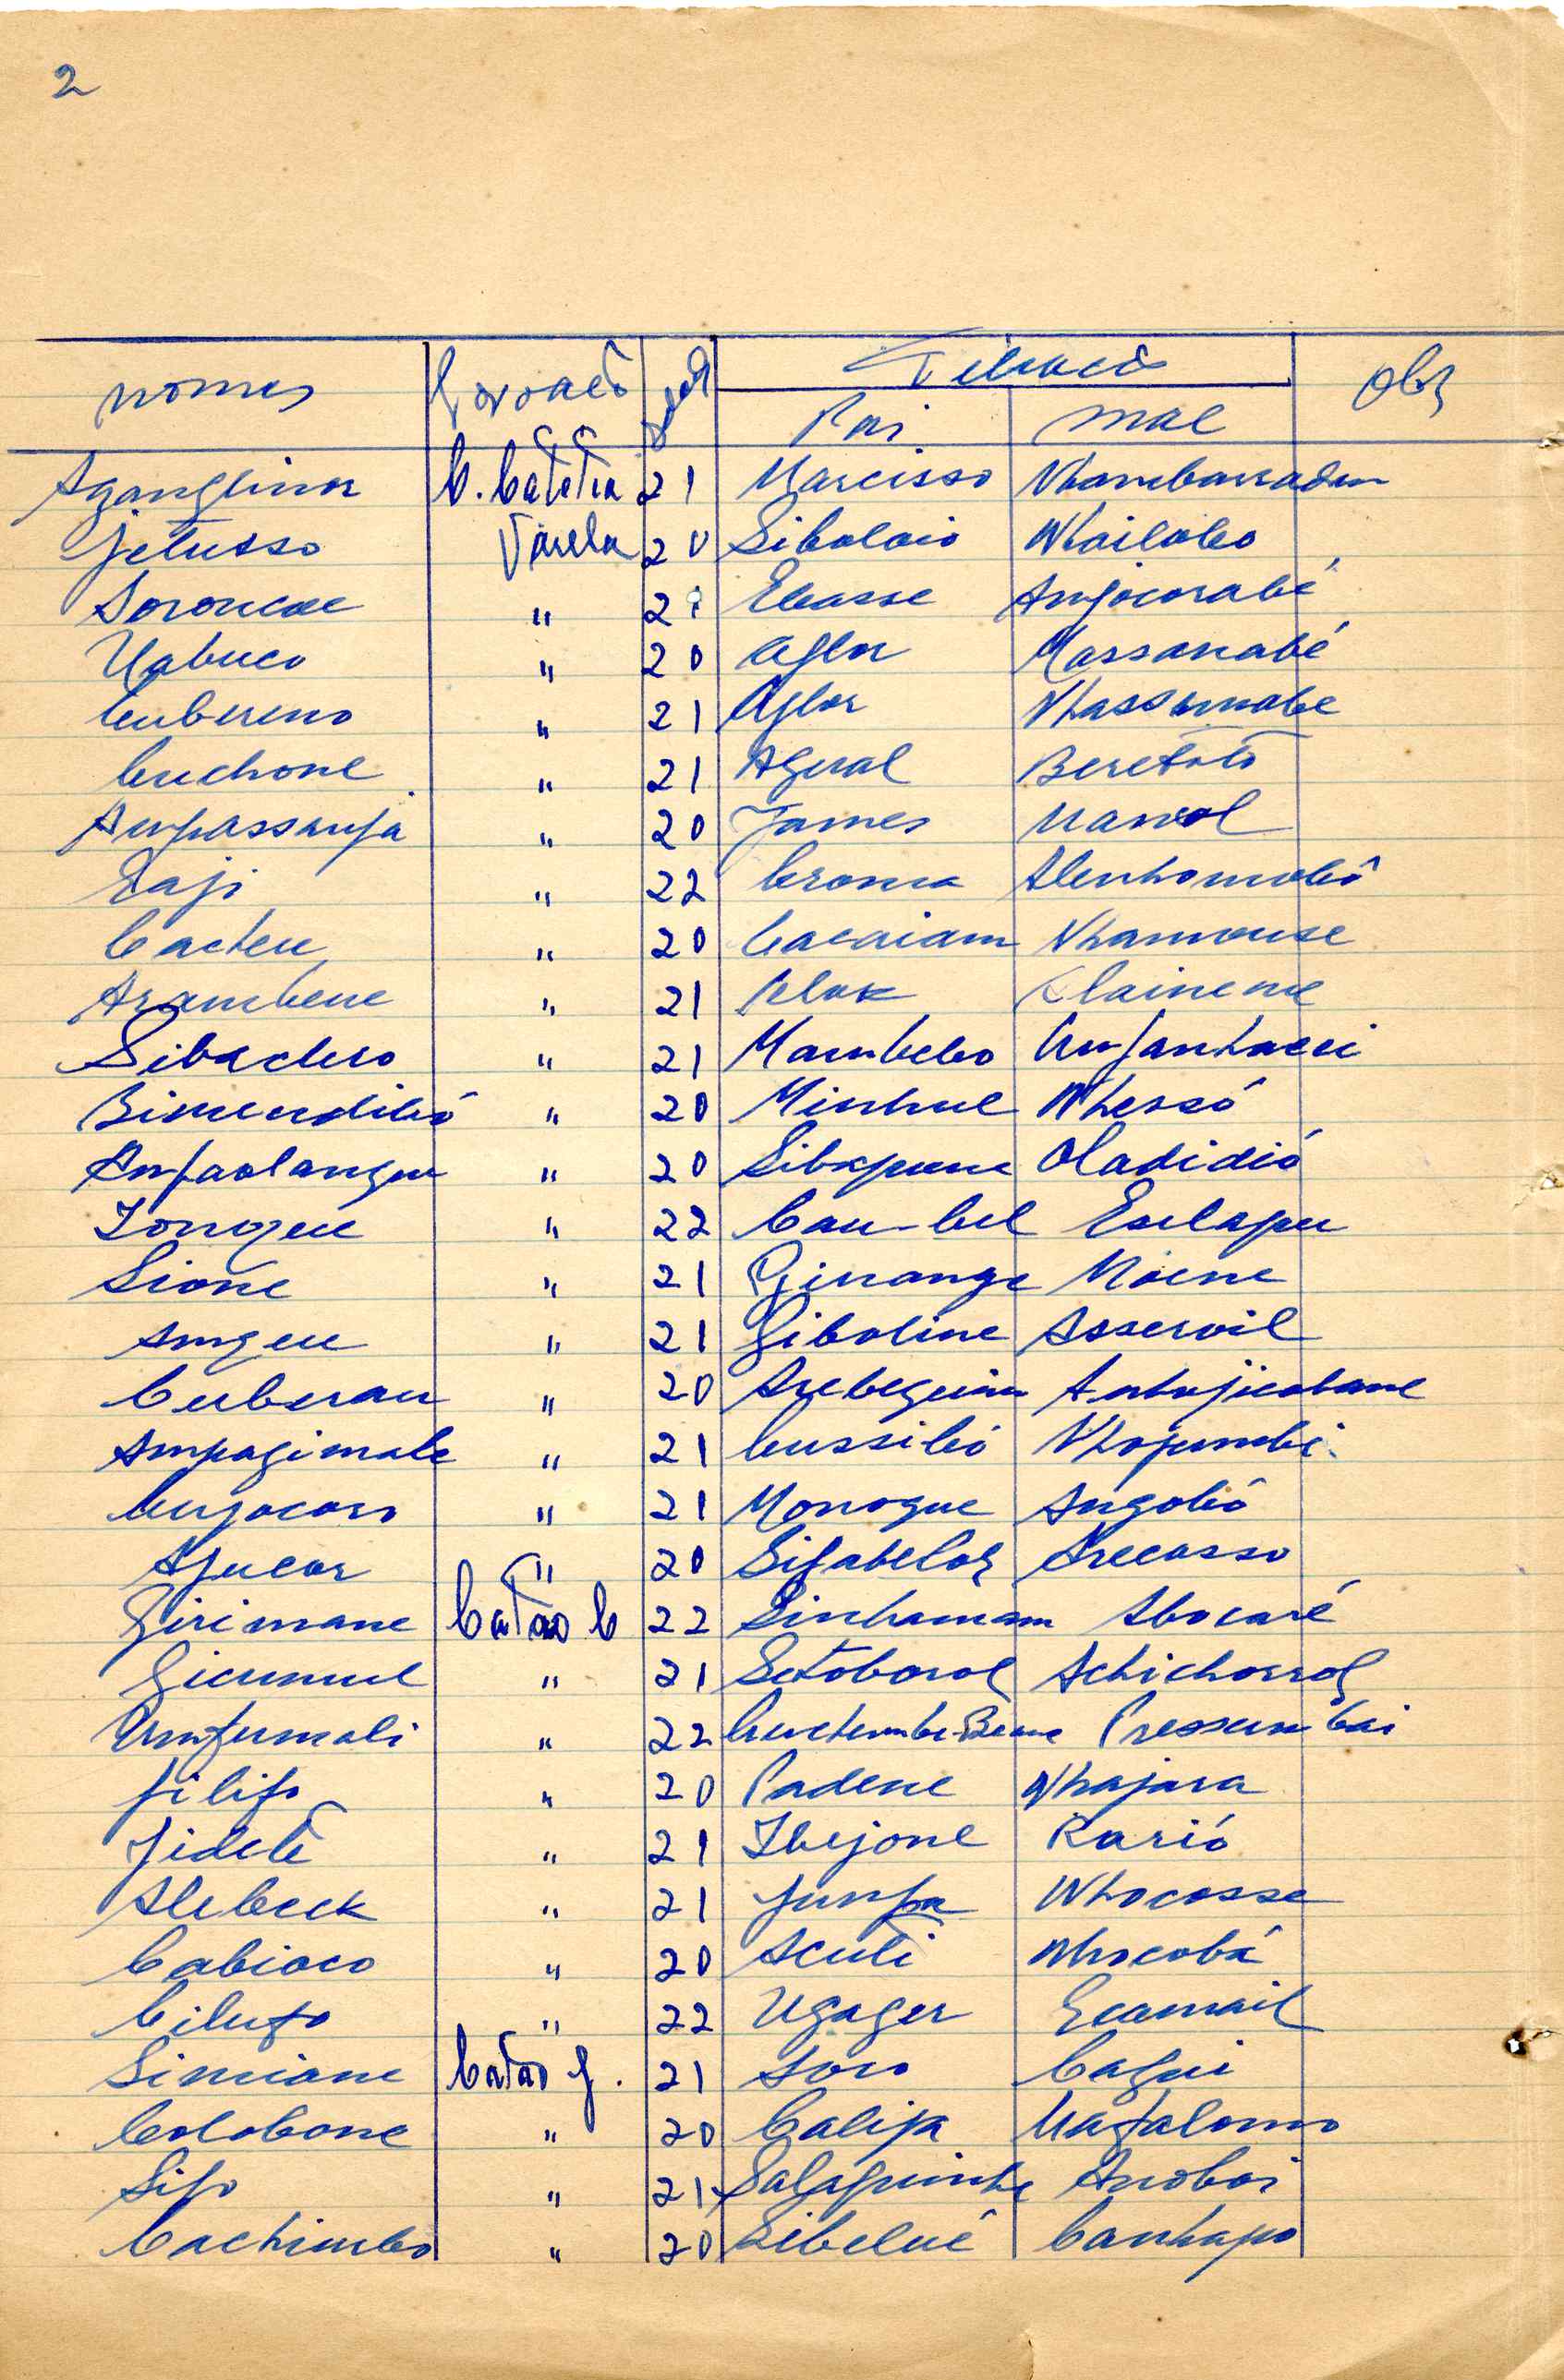 2
nomes Povoação Idade Filiação Obs
Pai mãe
Aganglinor C. Catetia 21 Narcisso Nhambarraden
Jetusso Varela 20 Sibolaio Nhailobo
Soroncoe " 2 Ebasse Anjocorabé
Nabuco " 20 Aflor Massanabé
Cubereno " 21 Aflor Nhassumabe
Cuchone " 21 Agual Beretótó
Ampassanja " 20 James Nanrol
Eaji " 22 Croma Alenhomobó
Cacheu " 20 Cacaiam Nhamouse
Arambene " 21 Klok Claineme
Sibachero " 21 Mambebo Umfanhoci
Bimendibó " 20 Minhul Nhessó
Anfaolangu " 20 Sibapune Oladidió
Tongue " 22 Cau-bul Eulapu
Sione " 21 Girrange Noene
Angeu " 21 Giboline Asservil
Cuberau " 20 Arebeguim Anhajicobane
Ampagimole " 21 Cussibó Nhopumbi
Cujocoro " 21 Monogue Angobó
Açucar " 20 Sifabelog Arecosso
Girimane Catão C 22 Sinhamam Abocaré
Gicumul " 21 Setoborol Achichorrol
Umfumali " 22 Cuchumbe-Beane Pressumbai
Filifo " 20 Padene Nhajara
Fidete " 21 Ibejone Karió
Alebeck " 21 Junfa Nhocosse
Cabioco " 20 Acuti Nhocobá
Cilufo " 22 Ugager Ecamail
Simiane Catão J. 21 Soro Cagui
Colobone " 20 Califa Nafalomo
Sifo " 21 Salafuinhe Anoboi
Cachimbo " 20 Sibelué Canhapo